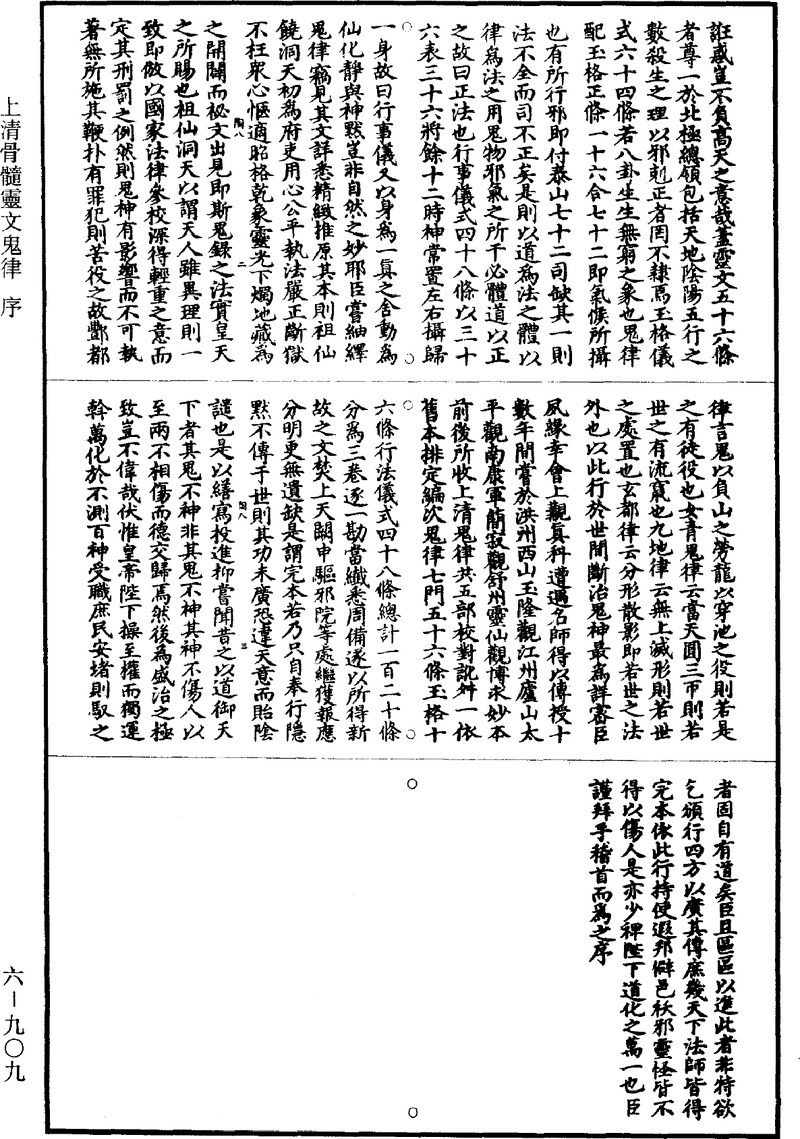 上清骨髓靈文鬼律　序
誑惑豈不負高天之意哉蓋靈文五十六條
者尊一於北極總領包括天地陰陽五行之
數殺生之理以邪剋正者罔不隸焉玉格儀
式六十四條若八卦生生無窮之象也鬼律
配玉格正條一十六合七十二即氣候所攝
也有所行邪即付泰山七十二司缺其一則
法不全而司不正矣是則以道為法之體以
律為法之用鬼物邪氣之所干必體道以正
之故曰正法也行事儀式四十八條以三十
六表三十六將餘十二時神常置左右攝歸
一身故曰行事儀又以身為一真之舍動為
仙化靜與神默豈非自然之妙耶臣嘗紬繹
鬼律竊見其文詳悉精緻推原其本則祖仙
饒洞天初為府吏用心公平執法嚴正斷獄
不枉眾心愜適昭格乾象靈光下燭地藏為
之開闢而祕文出見即斯鬼錄之法實皇天
之所賜也祖仙洞天以謂天人雖異理則一
致即倣以國家法律參校深得輕重之意而
定其刑罰之例然則鬼神有影響而不可執
著無所施其鞭扑有罪犯則苦役之故酆都
律言鬼以負山之勞龍以穿池之役則若是
之有徒役也女青鬼律云當天圓三帀則若
世之有流竄也九地律云無上滅形則若世
之處置也玄都律云分形散影即若世之法
外也以此行於世間斷治鬼神最為詳審臣
夙緣幸會上觀真科遭遇名師得以傳授十
數年間嘗於洪州西山玉隆觀江州廬山太
平觀南康軍簡寂觀舒州靈仙觀博求妙本
前後所收上清鬼律共五部校對訛舛一依
舊本排定編次鬼律七門五十六條玉格十
六條行法儀式四十八條總計一百二十條
分為三卷逐一勘當纖悉周備遂以所得新
故之文焚上天闕申驅邪院等處繼獲報應
分明更無遺缺是謂完本若乃只自奉行隱
默不傳于世則其功未廣恐違天意而貽陰
譴也是以繕寫投進抑嘗聞昔之以道御天
下者其鬼不神非其鬼不神其神不傷人以
至兩不相傷而德交歸焉然後為盛治之極
致豈不偉哉伏惟皇帝陛下操至權而獨運
斡萬化於不測百神受職庶民安堵則馭之
者固自有道矣臣且區區以進此者非特欲
乞頒行四方以廣其傳庶幾天下法師皆得
完本依此行持使遐邦僻邑袄邪靈怪皆不
得以傷人是亦少裨陛下道化之萬一也臣
謹拜手稽首而為之序
六－九〇九